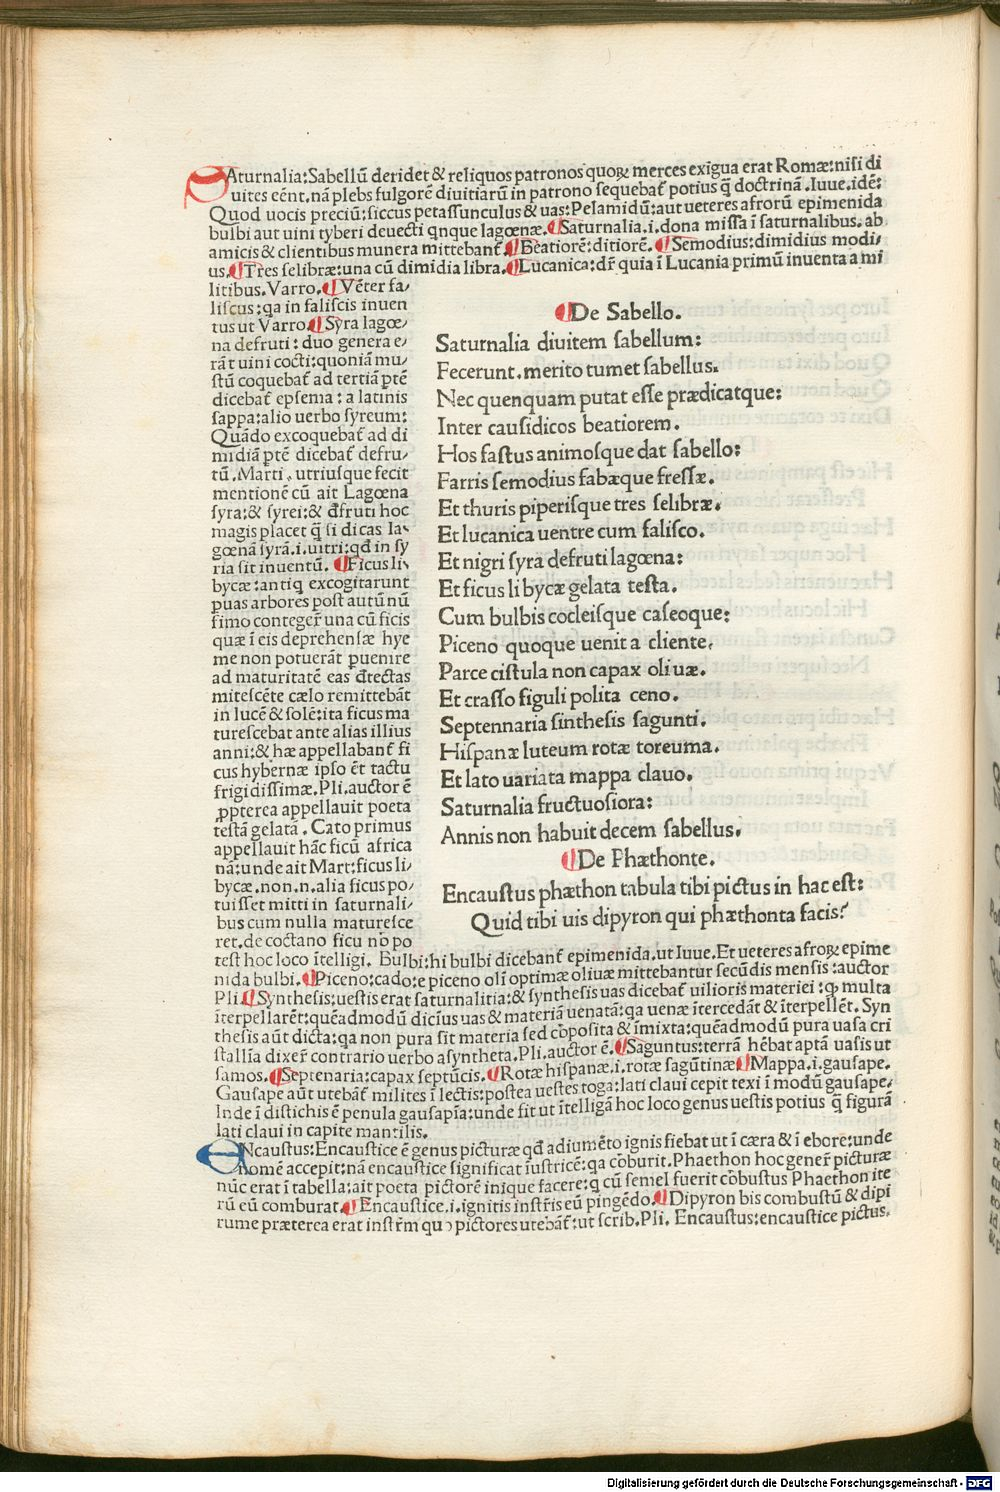 SAturnalia:Sabellū deridet & reliquos patronos quoꝝ merces exigua erat Romæ:nisi di
uites eēnt.nā plebs fulgorē diuitiarū in patrono sequebat̄ potius q̄ doctrinā.Iuue.idē:
Quod uocis preciū:siccus petassunculus & uas:Pelamidū:aut ueteres afrorū epimenida
bulbi aut uini tyberi deuecti qnque lagœnæ.¶Saturnalia.i.dona missa ī saturnalibus.ab
amicis & clientibus munera mittebant̄.¶Beatiorē:ditiorē.¶Semodius:dimidius modi/
us.¶Tres selibræ:una cū dimidia libra.¶Lucanica:dr̄ quia ī Lucania primū inuenta a mi
litibus.Varro.¶Vēter fa/
liscus:qa in faliscis inuen
tus ut Varro.¶Syra lagœ/
na defruti:duo genera e/
rāt uini cocti:quoniā mu/
stū coquebat̄ ad tertiā ptē
dicebat̄ epsema:a latinis
sappa:alio uerbo syreum:
Quādo excoquebat̄ ad di
midiā ptē dicebat̄ defru/
tū.Marti.utriusque fecit
mentionē cū ait Lagœna
syra:& syrei:& đfruti hoc
magis placet q̄ si dicas la/
gœnā syrā.i.uitri:qđ in sy
ria sit inuentū.¶Ficus li/
bycæ:antiq excogitarunt
puas arbores post autūnū
fimo conteger̄ una cū ficis
quæ ī eis deprehensæ hye
me non potuerāt puenire
ad maturitatē eas đtectas
mitescēte cælo remittebāt
in lucē & solē:ita ficus ma
turescebat ante alias illius
anni:& hæ appellabant̄ fi
cus hybernæ ipso ēt tactu
frigidissimæ.Pli.auctor ē
ꝓpterea appellauit poeta
testā gelatā.Cato primus
appellauit hāc ficū africa
nā:unde ait Mart:ficus li/
bycæ.non.n.alia ficus po/
tuisset mitti in saturnali/
bus cum nulla maturesce
ret.de coctano ficu nō po
¶De Sabello.
Saturnalia diuitem sabellum:
Fecerunt.merito tumet sabellus.
Nec quenquam putat esse prædicatque:
Inter causidicos beatiorem.
Hos fastus animosque dat sabello:
Farris semodius fabæque fressæ.
Et thuris piperisque tres selibræ.
Et lucanica uentre cum falisco.
Et nigri syra defruti lagœna:
Et ficus libycæ gelata testa.
Cum bulbis cocleisque caseoque:
Piceno quoque uenit a cliente,
Parce cistula non capax oliuæ.
Et crasso figuli polita ceno.
Septennaria sinthesis sagunti.
Hispanæ luteum rotæ toreuma.
Et lato uariata mappa clauo.
Saturnalia fructuosiora:
Annis non habuit decem sabellus.
¶De Phæthonte.
Encaustus phæthon tabula tibi pictus in hac est:
Quid tibi uis dipyron qui phæthonta facis?
test hoc loco ītelligi. Bulbi:hi bulbi dicebant̄ epimenida.ut Iuue.Et ueteres afroꝝ epime
nida bulbi.¶Piceno:cado:e piceno olī optimæ oliuæ mittebantur secūdis mensis:auctor
Pli.¶Synthesis:uestis erat saturnalitia:& synthesis uas dicebat̄ uilioris materiei:qɔ multa
īterpellarēt:quēadmodū dicīus uas & materiā uenatā:qa uenæ ītercedāt & īterpellēt.Syn
thesis aūt dicta:qa non pura sit materia sed cōposita & īmixta:quēadmodū pura uasa cri
stallīa dixer̄ contrario uerbo asyntheta.Pli.auctor ē.¶Saguntus:terrā hēbat aptā uasis ut
samos.¶Septenaria:capax septūcis.¶Rotæ hispanæ.i.rotæ sagūtinæ¶Mappa.i.gausape.
Gausape aūt utebāt̄ milites ī lectis:postea uestes toga:lati claui cepit texi ī modū gausape/
Inde ī distichis ē penula gausapīa:unde sit ut ītelligā hoc loco genus uestis potius q̄ figurā
lati claui in capite mantilis.
ENcaustus:Encaustice ē genus picturæ qđ adiumēto ignis fiebat ut ī cæra & ī ebore:unde
nomē accepit:nā encaustice significat īustricē:qa cōburit.Phaethon hoc gener̄ picturæ
nūc erat ī tabella:ait poeta pictorē inique facere:q cū semel fuerit cōbustus Phaethon ite
rū eū comburat.¶Encaustice.i.ignitis instr̄is eū pingēdo.¶Dipyron bis combustū & dipi
rume præterea erat instr̄m quɔ pictores utebāt̄:ut scrib.Pli. Encaustus:encaustice pictus.
Digitalisierung gefördert durch die Deutsche Forschungsgemeinschaft - DFG